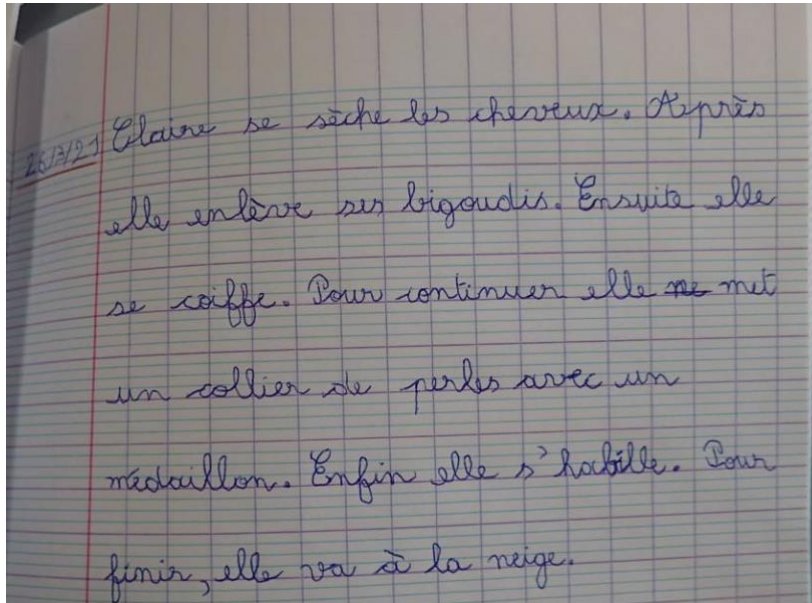 26/3/21 Claire se sèche les cheveux. Après
elle enlève ses bigoudis. Ensuite elle
se coiffe. Pour continuer elle ne met
un collier de perles avec un
médaillon. Enfin elle s'habille. Pour
finir, elle va à la neige.